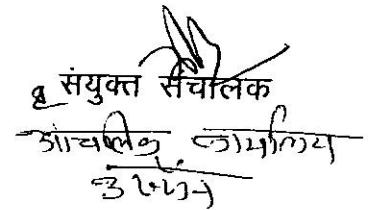 संयुक्त संचालक
आंचलिक कार्यालय
उज्जैन